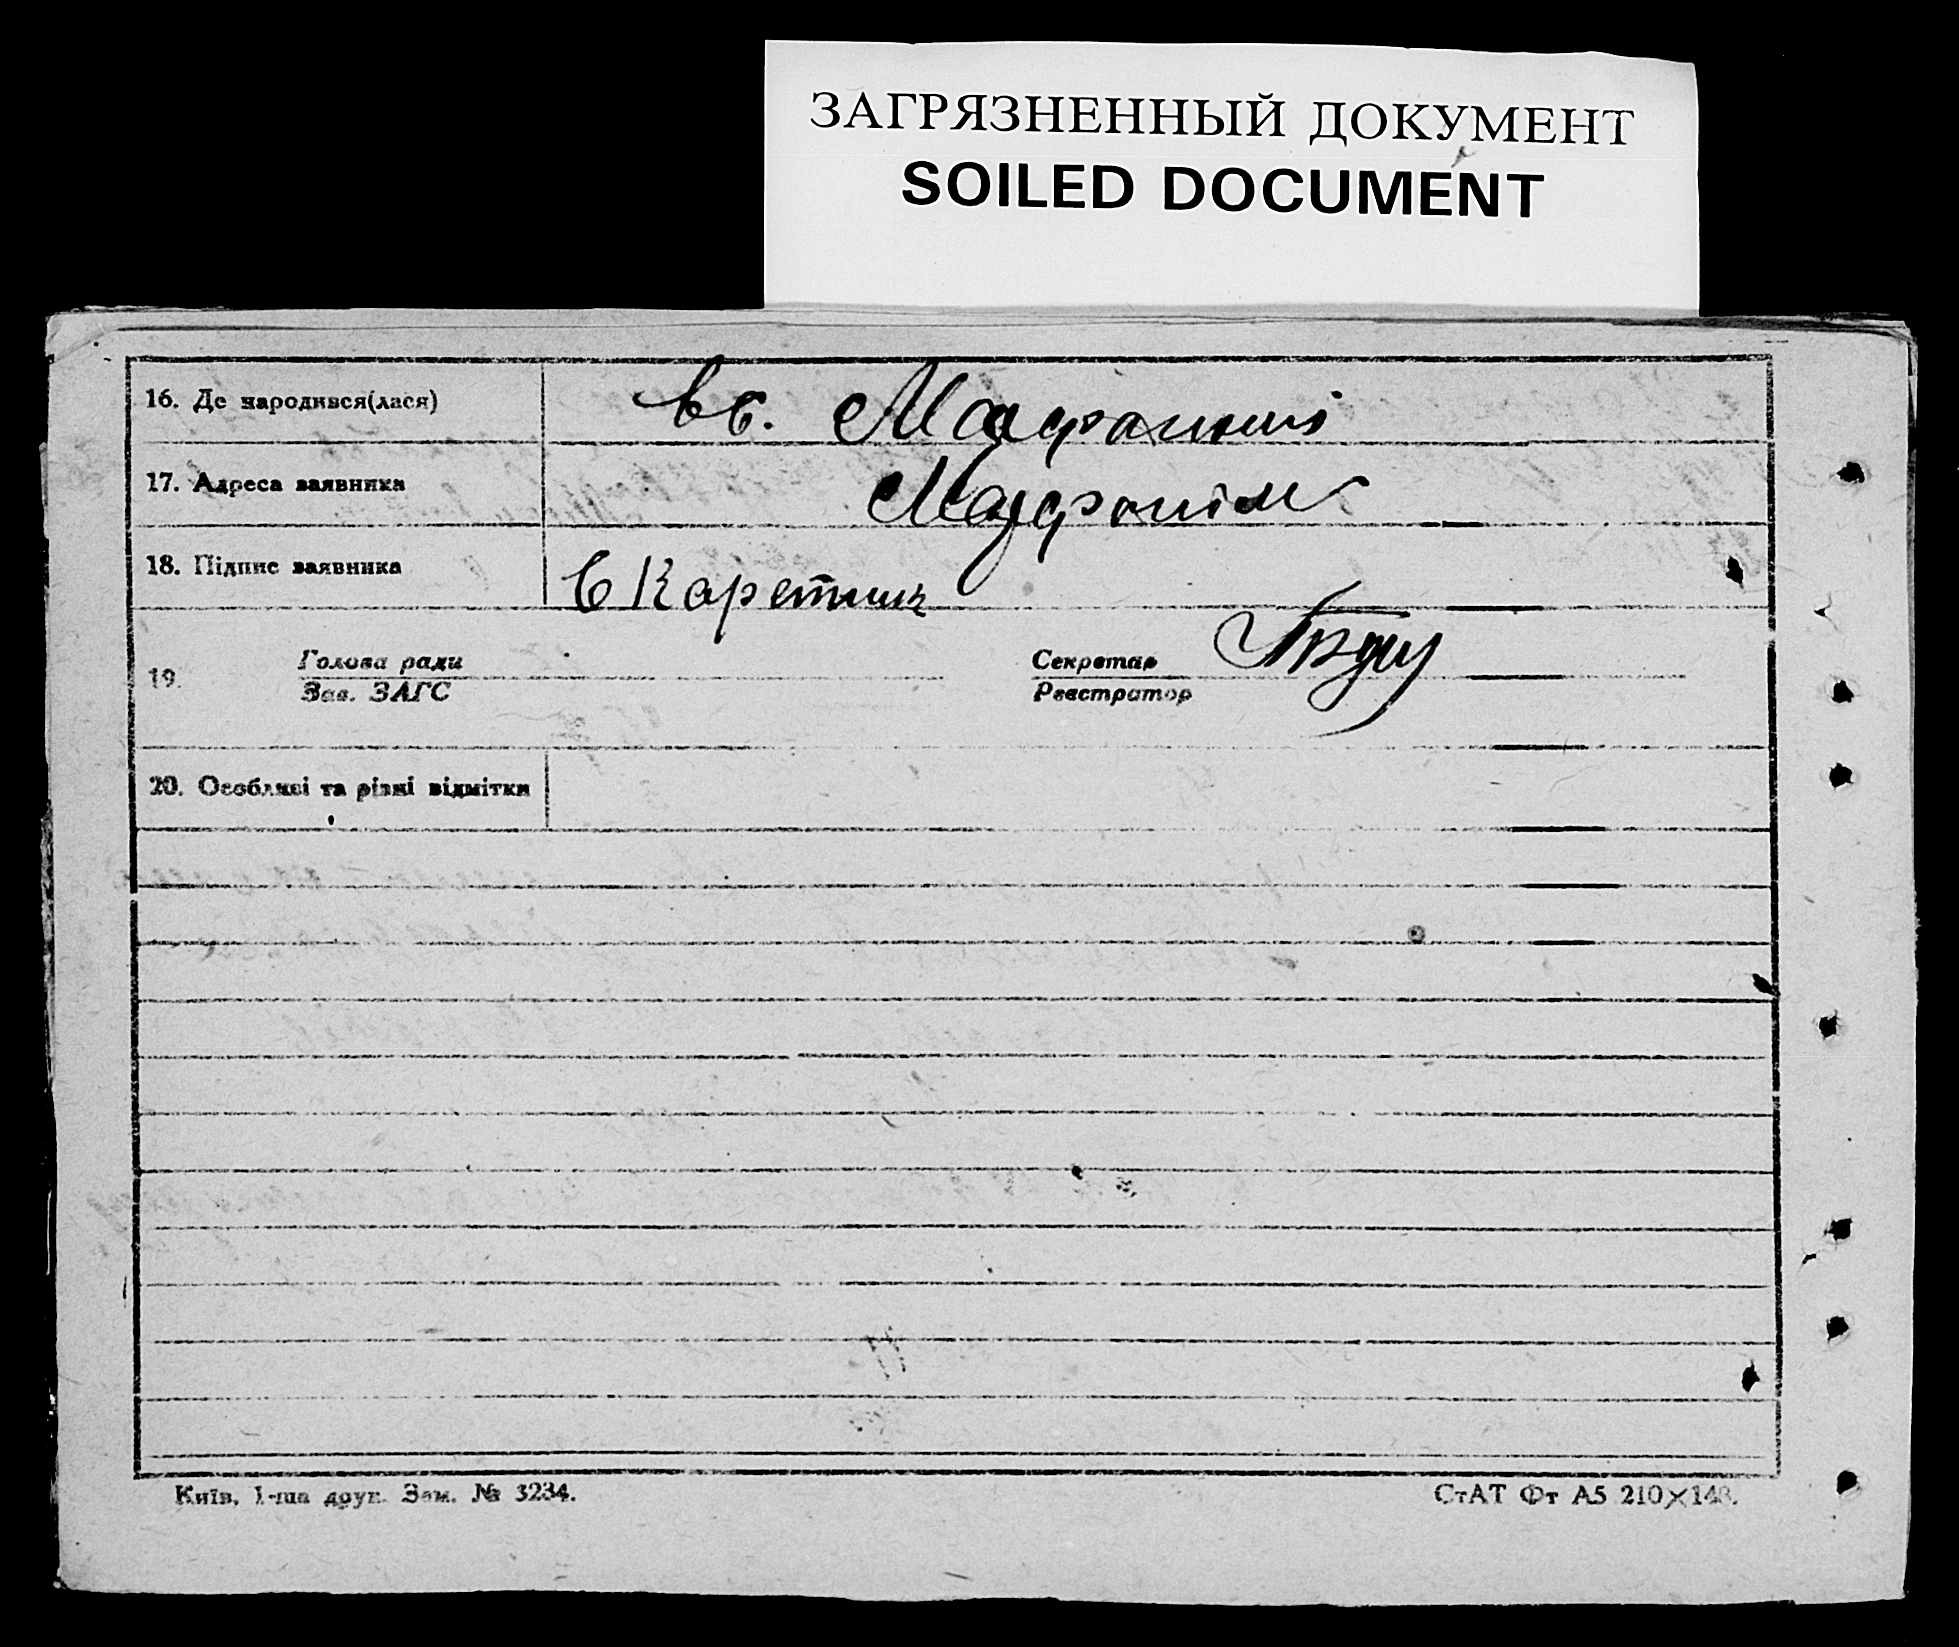 ЗАГРЯЗНЕННЫЙ ДОКУМЕНТ
SOILED DOCUMENT
16. Де народився(лася)
в с.
17. Адреса заявника
18. Підпис заявника
19.
Голова ради
Зав. ЗАГС
Секретар
Реєстратор
20. Особливі та різні відмітки
Київ, 1-ша друк. Зам. № 3234.
СтАТ Фт А5 210×148.